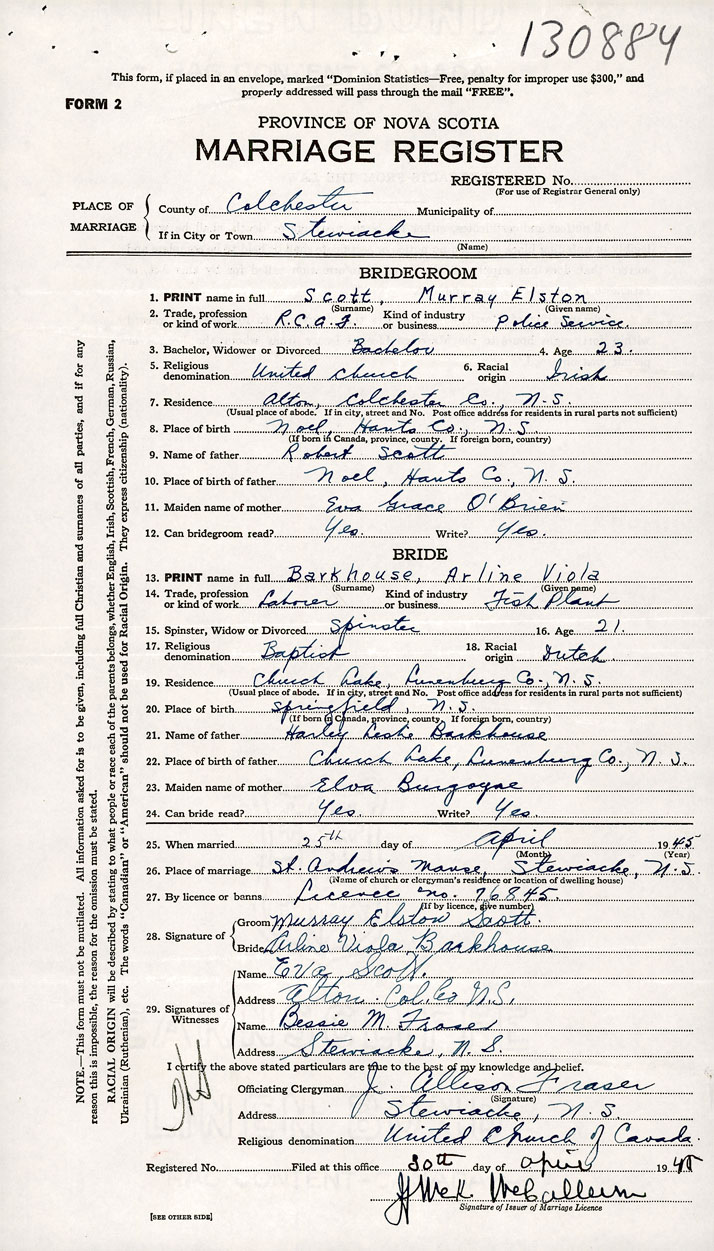 130884
This form, if placed in an envelope, marked "Dominion Statistics—Free, penalty for improper use $300," and
properly addressed will pass through the mail "FREE".
FORM 2
PROVINCE OF NOVA SCOTIA
MARRIAGE REGISTER
REGISTERED No.
(For use of Registrar General only)
PLACE OF MARRIAGE
County of Colchester Municipality of
If in City or Town Stewiacke
(Name)
BRIDEGROOM
1. PRINT name in full Scott, Murray Elston
(Surname) (Given name)
2. Trade, profession or kind of work R.C.A.F. Kind of industry or business Police Service.
3. Bachelor, Widower or Divorced Bachelor 4. Age 23.
5. Religious denomination United Church 6. Racial origin Irish
7. Residence Alton, Colchester Co., N.S.
(Usual place of abode. If in city, street and No. Post office address for residents in rural parts not sufficient)
8. Place of birth Noel, Hants Co., N.S.
(If born in Canada, province, county. If foreign born, country)
9. Name of father Robert Scott
10. Place of birth of father Noel, Hants Co., N.S.
11. Maiden name of mother Eva Grace O'Brien
12. Can bridegroom read? Yes. Write? Yes.
BRIDE
13. PRINT name in full Barkhouse, Arline Viola
(Surname) (Given name)
14. Trade, profession or kind of work Laborer Kind of industry or business Fish Plant
15. Spinster, Widow or Divorced Spinster 16. Age 21.
17. Religious denomination Baptist 18. Racial origin Dutch
19. Residence Church Lake, Lunenburg Co., N.S.
(Usual place of abode. If in city, street and No. Post office address for residents in rural parts not sufficient)
20. Place of birth Springfield, N.S.
(If born in Canada, province, county. If foreign born, country)
21. Name of father Harley Leslie Barkhouse
22. Place of birth of father Church Lake, Lunenburg Co., N.S.
23. Maiden name of mother Elva Burgoyne
24. Can bride read? Yes. Write? Yes.
25. When married 25th day of April 1945
(Month) (Year)
26. Place of marriage St. Andrew's Manse, Stewiacke, N.S.
(Name of church or clergyman's residence or location of dwelling house)
27. By licence or banns Licence no. 76845.
(If by licence, give number)
28. Signature of
Groom Murray Elston Scott.
Bride Arline Viola, Barkhouse
29. Signatures of Witnesses
Name Eva Scott.
Address Alton Col. Co N.S.
Name Bessie M. Fraser
Address Stewiacke, N.S.
I certify the above stated particulars are true to the best of my knowledge and belief.
Officiating Clergyman J. Allison Fraser
(Signature)
Address Stewiacke, N.S.
Religious denomination United Church of Canada.
Registered No. Filed at this office 30th day of April 1945
Signature of Issuer of Marriage Licence
[SEE OTHER SIDE]
NOTE.—This form must not be mutilated. All information asked for is to be given, including full Christian and surnames of all parties, and if for any
reason this is impossible, the reason for the omission must be stated.
RACIAL ORIGIN will be described by stating to what people or race each of the parents belongs, whether English, Irish, Scottish, French, German, Russian,
Ukrainian (Ruthenian), etc. The words "Canadian" or "American" should not be used for Racial Origin. They express citizenship (nationality).